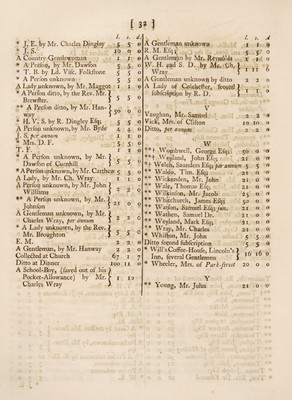 [ 32 ]
l. s. d
* J. E. by Mr. Charles Dingley 5 5 0
* J. S. 10 0 0
A Country Gentlewoman 1 1 0
* A Person, by Mr. Dawson 5 5 0
* T. B. by Ld. Visc. Folkstone 5 5 0
* A Person unknown 5 5 0
A Lady unknown, by Mr. Maggot 1 1 0
* A Person ditto, by the Rev. Mr. Brewster 5 5 0
** A Person ditto, by Mr. Hanway 50 0 0
* H. V. S. by R. Dingley Esq. 5 5 0
A Person unknown, by Mr. Byde 4 4 0
J S. per annum 1 1 0
* Mrs. D. F. 5 5 0
T. F. 1 1 0
* A Person unknown, by Mr. Dawson of Cornhill 5 5 0
* A Person unknown, by Mr. 5 5 0
A Lady, by Mr. Ch. Wray 1 1 0
A Person unknown, by Mr. John Williams 2 2 0
** A Person unknown, by Mr. Johnson 21 0 0
A Gentleman unknown, by Mr. Charles Wray, per annum 2 2 0
* A Lady unknown, by the Rev. Mr. Broughton 5 5 0
E. M. 2 2 0
A Gentleman, by Mr. Hanway 2 2 0
Collected at Church 67 1 7
Ditto at Dinner 100 11 0
A School-Boy, (saved out of his Pocket-Allowance) by Mr. Charles Wray 1 1
l. s. d
A Gentleman unknown 1 1 0
R. M. Esq; 5 5 0
A Gentleman by Mr. Reynolds 1 1 0
W. H. and S. D. by Mr. Ch. Wray 1 1 0
A Gentleman unknown by ditto 2 2 0
A Lady of Colchester, second subscription by R. D. 1 1 0
V
Vaughan, Mr. Samuel 2 2 0
Vick, Mrs. of Clifton 10 10 0
Ditto, per annum 2 2 0
W
** Wombwell, George Esq; 50 0 0
** Weyland, John Esq; 21 0 0
* Welsh, Saunders Esq; per annum 5 5 0
** Waldo, Tim. Esq; 21 0 0
** Wickenden, Mr. John 21 0 0
** Wale, Thomas Esq; 21 0 0
** Wilkinson, Mr. Jacob 21 0 0
** Whitchurch, James Esq; 50 0 0
** Watson, Samuel Esq; jun. 21 0 0
** Wathen, Samuel Dr. 21 0 0
** Weyland, Mark Esq; 21 0 0
** Wray, Mr. Charles 21 0 0
* Whiston, Mr. John 5 5 0
Ditto second subscription 5 5 0
* Will's Coffee-House, Lincoln's Inn, several Gentlemen 16 16 0
* Wheeler, Mrs. of Park-street 20 0 0
Y
** Young, Mr. John 21 0 0